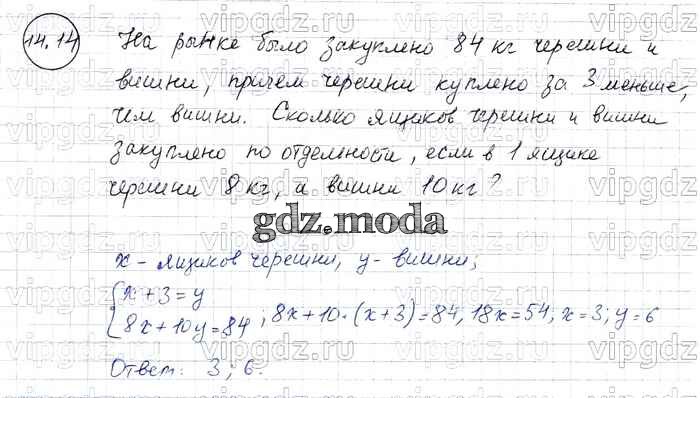 14.14
На рынке было закуплено 84 кг черешни и
вишни, причем черешни куплено за 3 меньше,
чем вишни. Сколько ящиков черешни и вишни
закуплено по отдельности, если в 1 ящике
черешни 8 кг, а вишни 10 кг?
gdz.moda
x - ящиков черешни, y - вишни;
{x + 3 = y
8x + 10y = 84 ; 8x + 10 · (x + 3) = 84, 18x = 54, x = 3; y = 6
Ответ: 3; 6.
vipgdz.ru